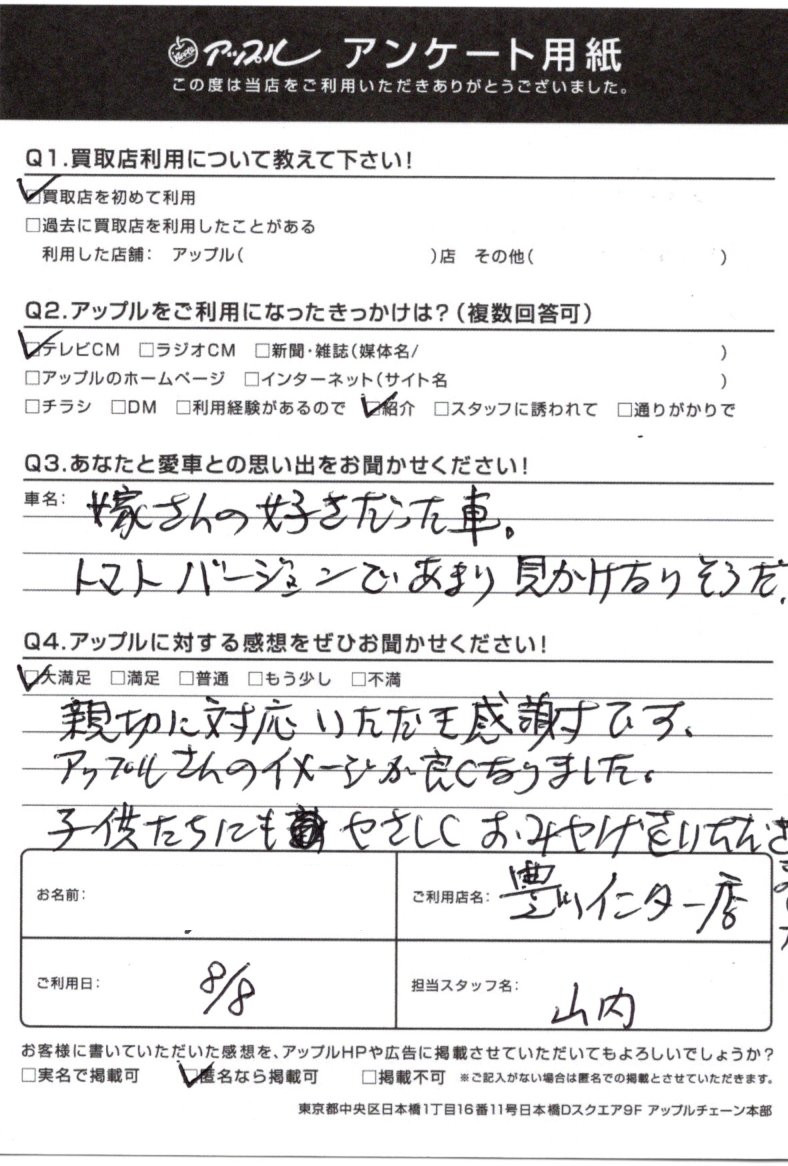 アップル アンケート用紙
この度は当店をご利用いただきありがとうございました。
Q1.買取店利用について教えて下さい!
☑買取店を初めて利用
□過去に買取店を利用したことがある
利用した店舗: アップル( )店 その他( )
Q2.アップルをご利用になったきっかけは?(複数回答可)
☑テレビCM □ラジオCM □新聞・雑誌(媒体名/ )
□アップルのホームページ □インターネット(サイト名 )
□チラシ □DM □利用経験があるので ☑紹介 □スタッフに誘われて □通りがかりで
Q3.あなたと愛車との思い出をお聞かせください!
車名: 嫁さんの好きだった車。
トマトバージョンで、あまり見かけなりそうだ
Q4.アップルに対する感想をぜひお聞かせください!
☑大満足 □満足 □普通 □もう少し □不満
親切に対応いただき感謝です。
アップルさんのイメージが良くなりました。
子供たちにもやさしく おみやげをいただき
お名前: ご利用店名: 豊川インター店
ご利用日: 8/8 担当スタッフ名: 山内
お客様に書いていただいた感想を、アップルHPや広告に掲載させていただいてもよろしいでしょうか?
□実名で掲載可 ☑匿名なら掲載可 □掲載不可 ※ご記入がない場合は匿名での掲載とさせていただきます。
東京都中央区日本橋1丁目16番11号日本橋Dスクエア9F アップルチェーン本部